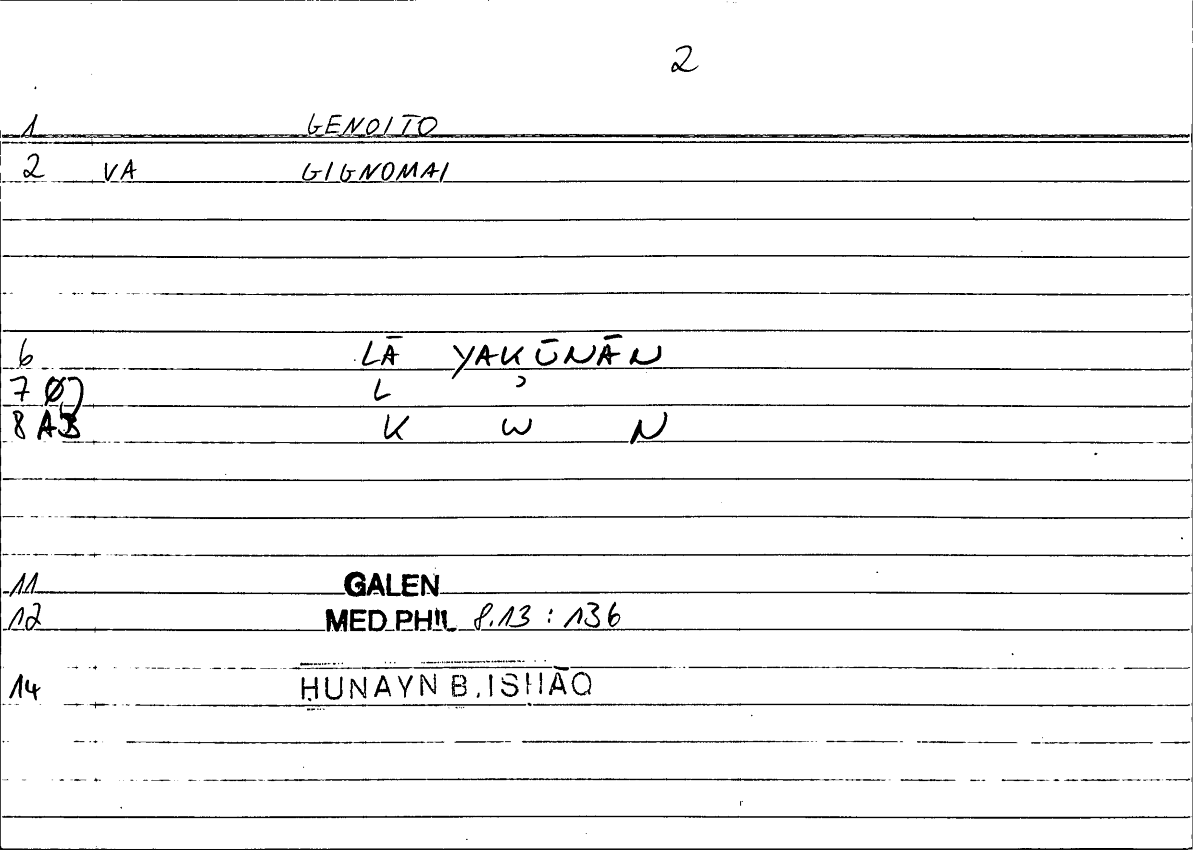 2
1 GENOITO
2 VA GIGNOMAI
6 LĀ YAKŪNĀN
7 Ø) L ʾ
8 AB K W N
11 GALEN
12 MED PHIL 8.13 : 136
14 ḤUNAYN B. ISḤĀQ